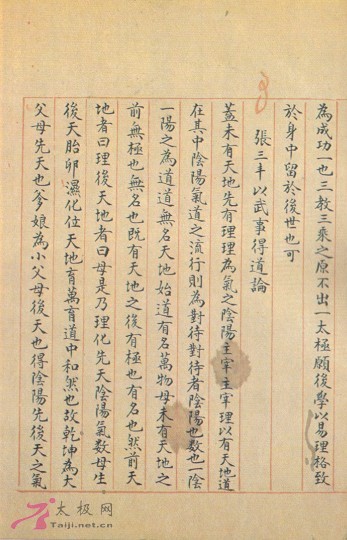 為成功一也三教三乘之原不出一太極願後學以易理格致
於身中留於後世也可
張三丰以武事得道論
蓋未有天地先有理理為氣之陰陽主宰主宰理以有天地道
在其中陰陽氣道之流行則為對待對待者陰陽也數也一陰
一陽之為道道無名天地始道有名萬物母未有天地之
前無極也無名也既有天地之後有極也有名也然前天
地者曰理後天地者曰母是乃理化先天陰陽氣數母生
後天胎卵濕化位天地育萬育道中和然也故乾坤為大
父母先天也爹娘為小父母後天也得陰陽先後天之氣
太极网
Taiji.net.cn